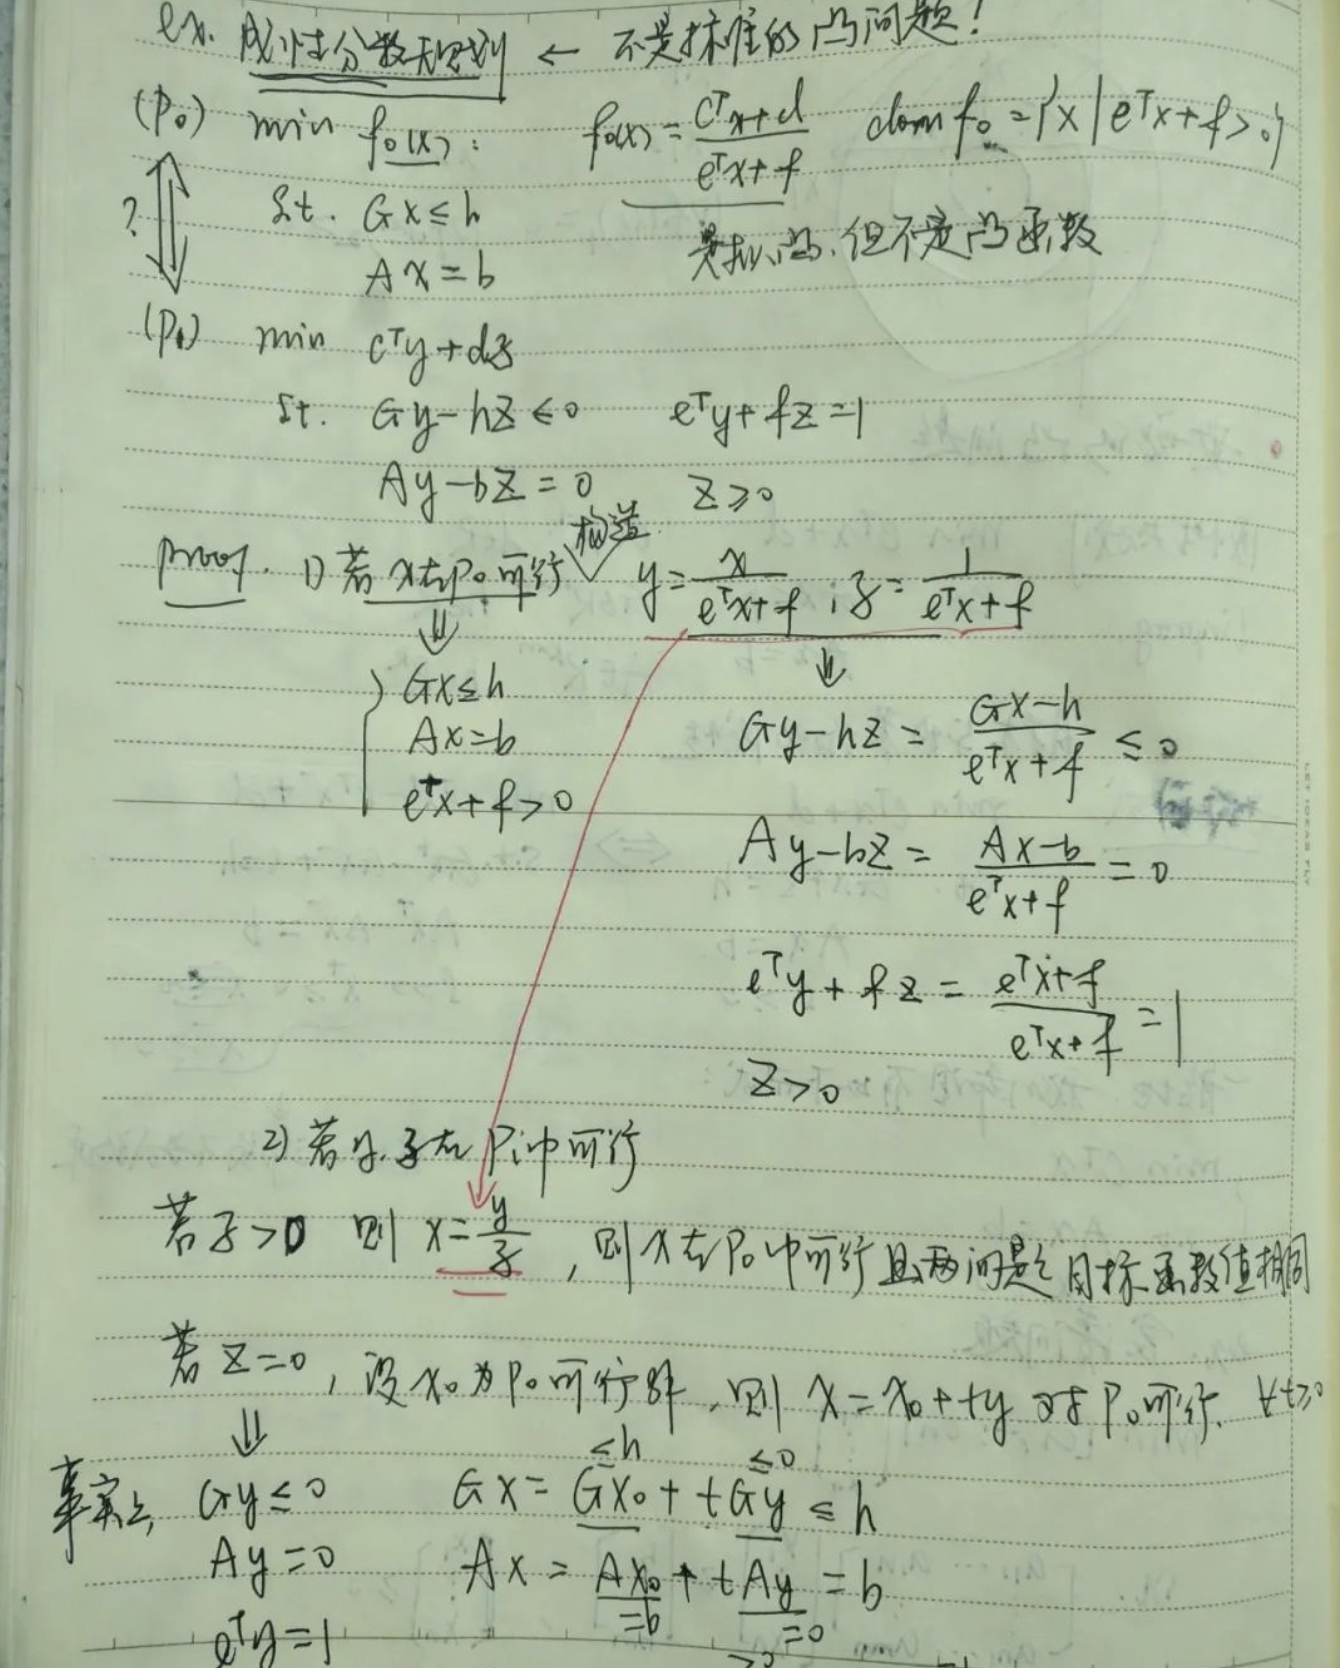 ex. 线性分数规划 ← 不是标准的凸问题!
(P₀) min f₀(x): f₀(x) = (cᵀx+d)/(eᵀx+f) dom f₀ = {x | eᵀx+f>0}
? ⇕ s.t. Gx ≤ h
是拟凸,但不是凸函数
Ax = b
(P₁) min cᵀy+dz
s.t. Gy-hz ≤ 0 eᵀy+fz=1
Ay-bz = 0 z ≥ 0
proof. 1) 若x在P₀可行 构造 y = x/(eᵀx+f) ; z = 1/(eᵀx+f)
⇓ ⇓
Gx ≤ h
Ax = b
eᵀx+f > 0
Gy-hz = (Gx-h)/(eᵀx+f) ≤ 0
Ay-bz = (Ax-b)/(eᵀx+f) = 0
eᵀy+fz = (eᵀx+f)/(eᵀx+f) = 1
z > 0
2) 若y.z在P₁中可行
若z>0 则 x = y/z , 则x在P₀中可行且两问题目标函数值相同
若z=0, 设x₀为P₀可行解, 则 x = x₀+ty 对P₀可行. ∀t≥0
⇓ ≤h ≤0
事实上 Gy ≤ 0 Gx = Gx₀ + tGy ≤ h
Ay = 0 Ax = Ax₀ + tAy = b
=b =0
eᵀy = 1